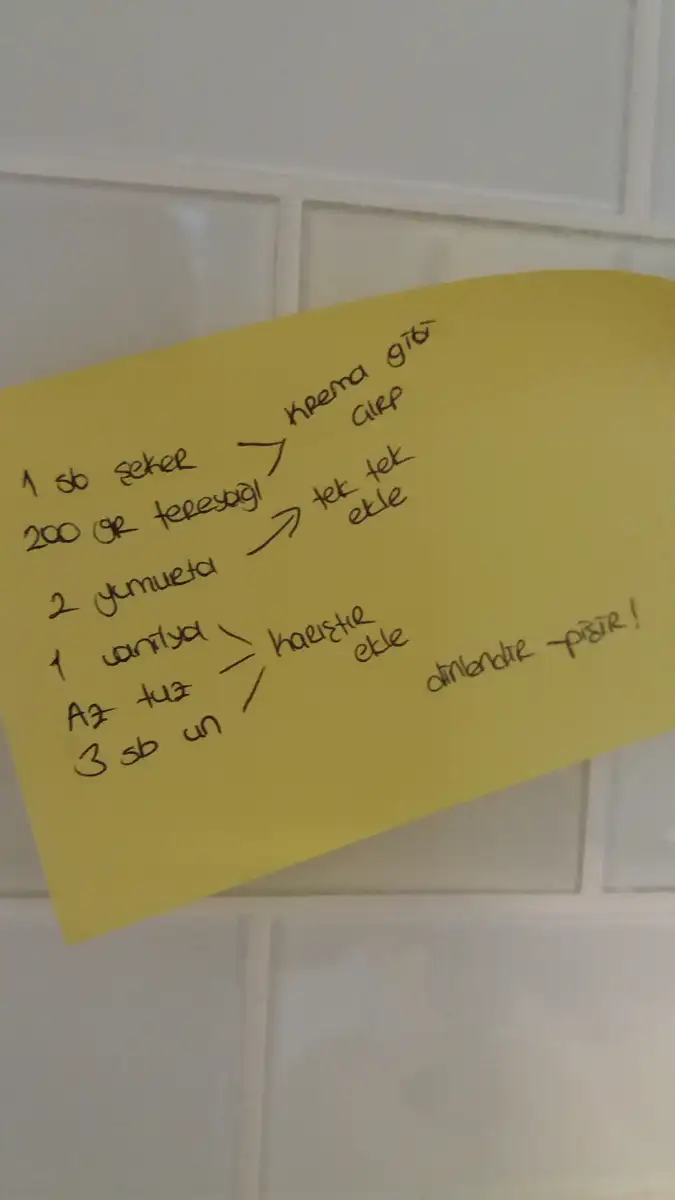 1 sb şeker
200 gr tereyağı
krema gibi
çırp
2 yumurta
tek tek
ekle
1 vanilya
Az tuz
3 sb un
karıştır
ekle
dinlendir - pişir!